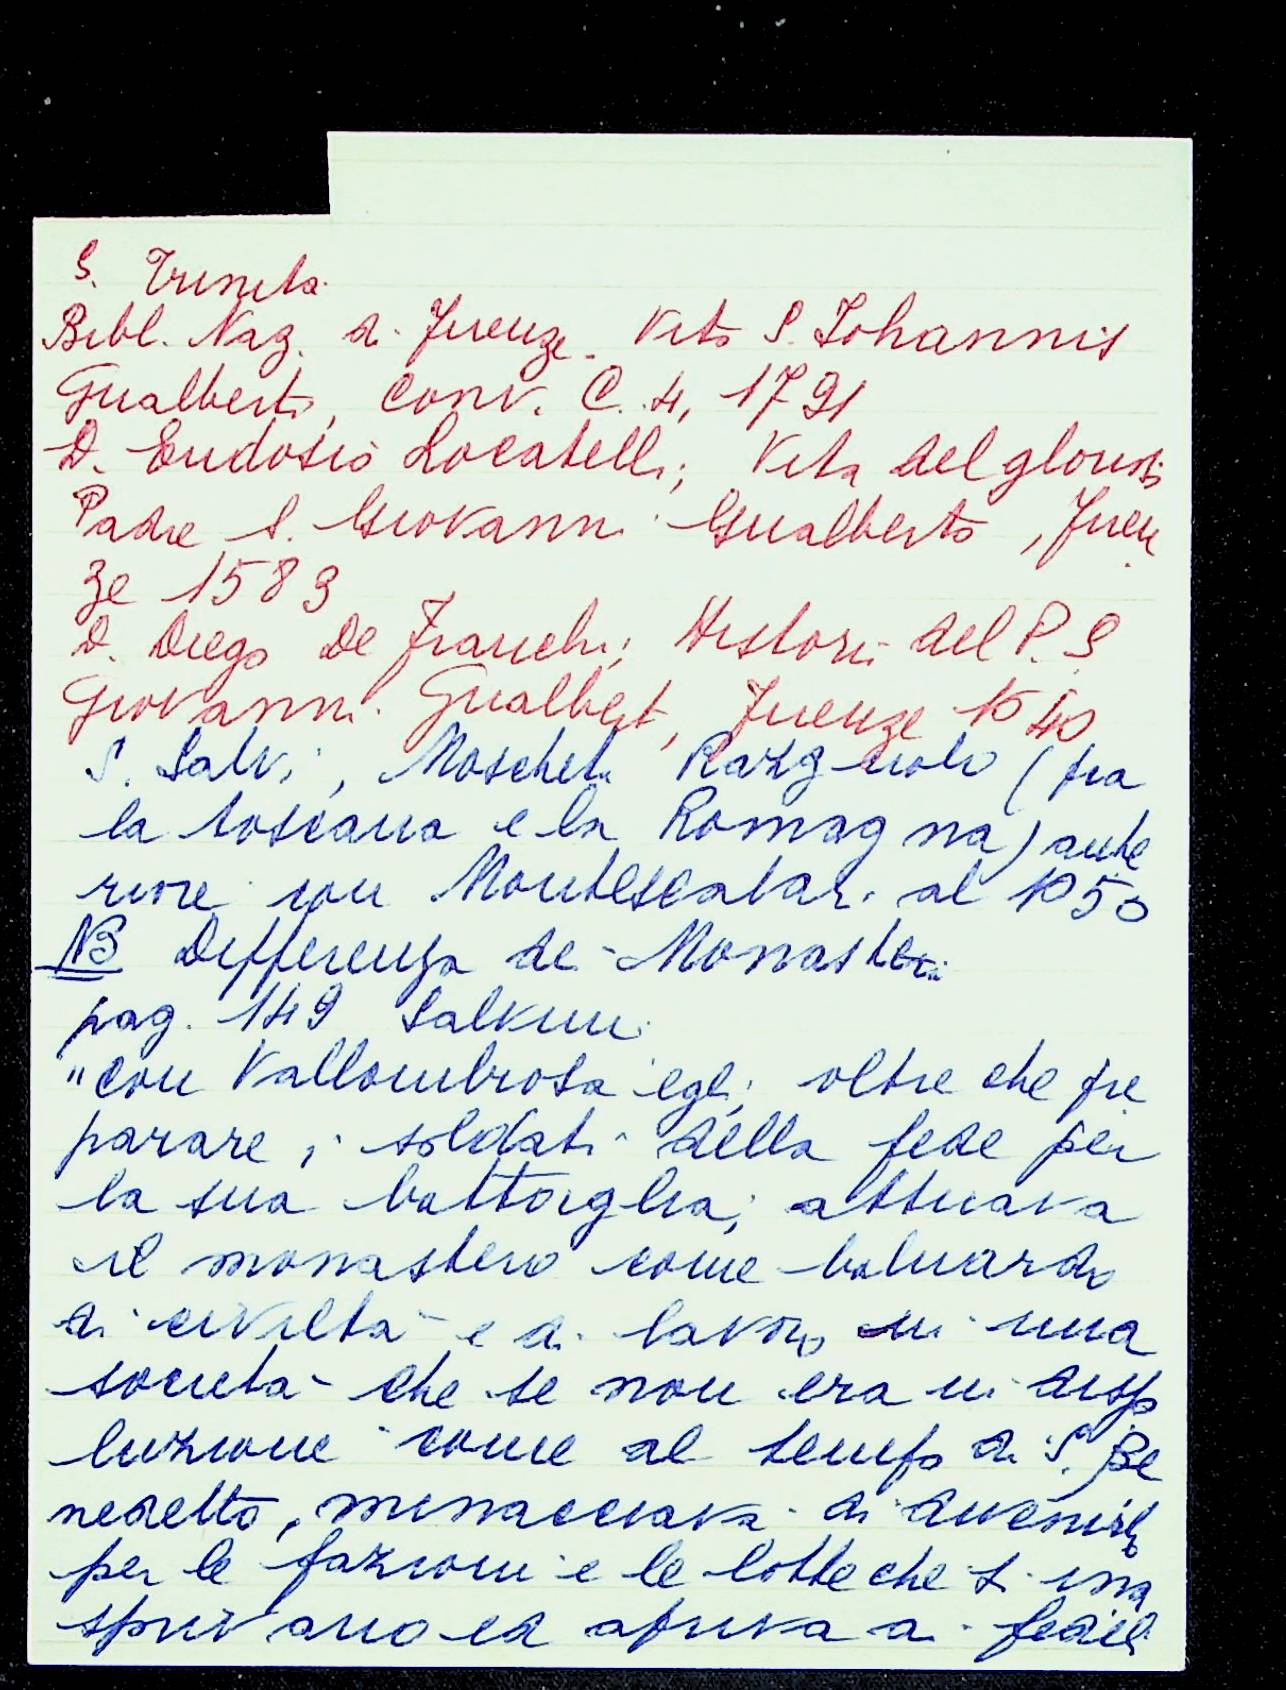 S. Trinita
Bibl. Naz. di Firenze. Vita S. Iohannis
Gualberti, Conv. C. 4, 1791
D. Eudosio Locatelli; Vita del glorioso
Padre S. Giovanni Gualberto, Firen
ze 1583
D. Diego De Franchi; Historia del P. S
Giovanni Gualberto, Firenze 1640
S. Salvi, Moscheta Razzuolo (fra
la toscana e la Romagna) ante
riore con Montescalari al 1050
NB Differenza dei Monasteri
pag. 149 Salvini
"con Vallombrosa egli oltre che pre
parare i soldati della fede per
la sua battaglia; attuava
il monastero come baluardo
di civiltà e di lavoro in una
società che se non era in disso
luzione come al tempo di S. Be
nedetto, minacciava di divenirlo
per le fazioni e le lotte che s'ina
sprivano ed apriva ai fedeli